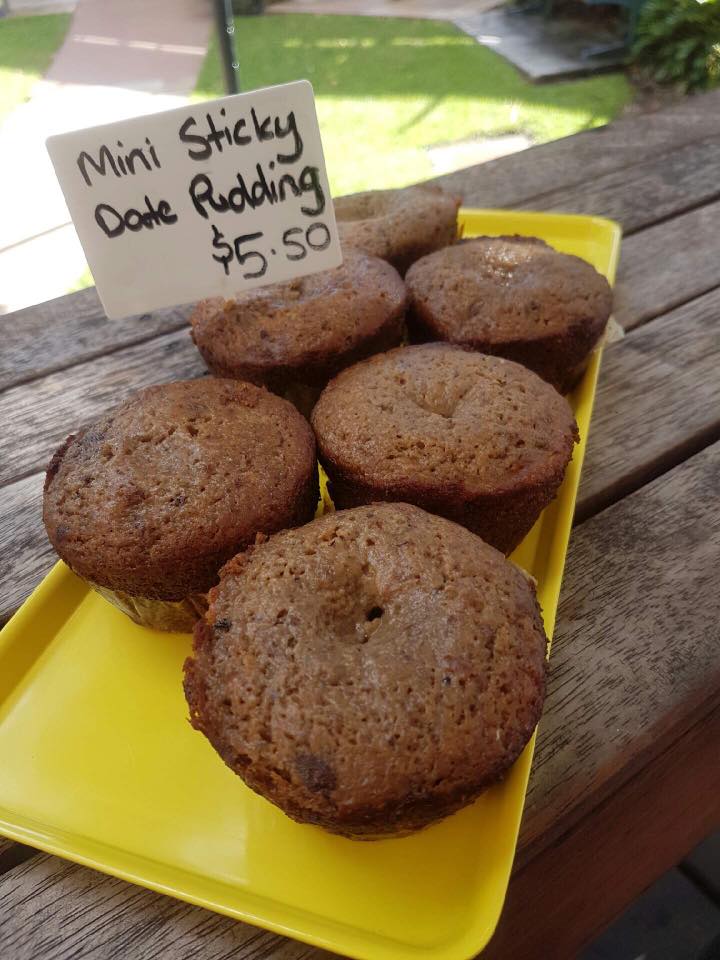 Mini Sticky
Date Pudding
$5.50